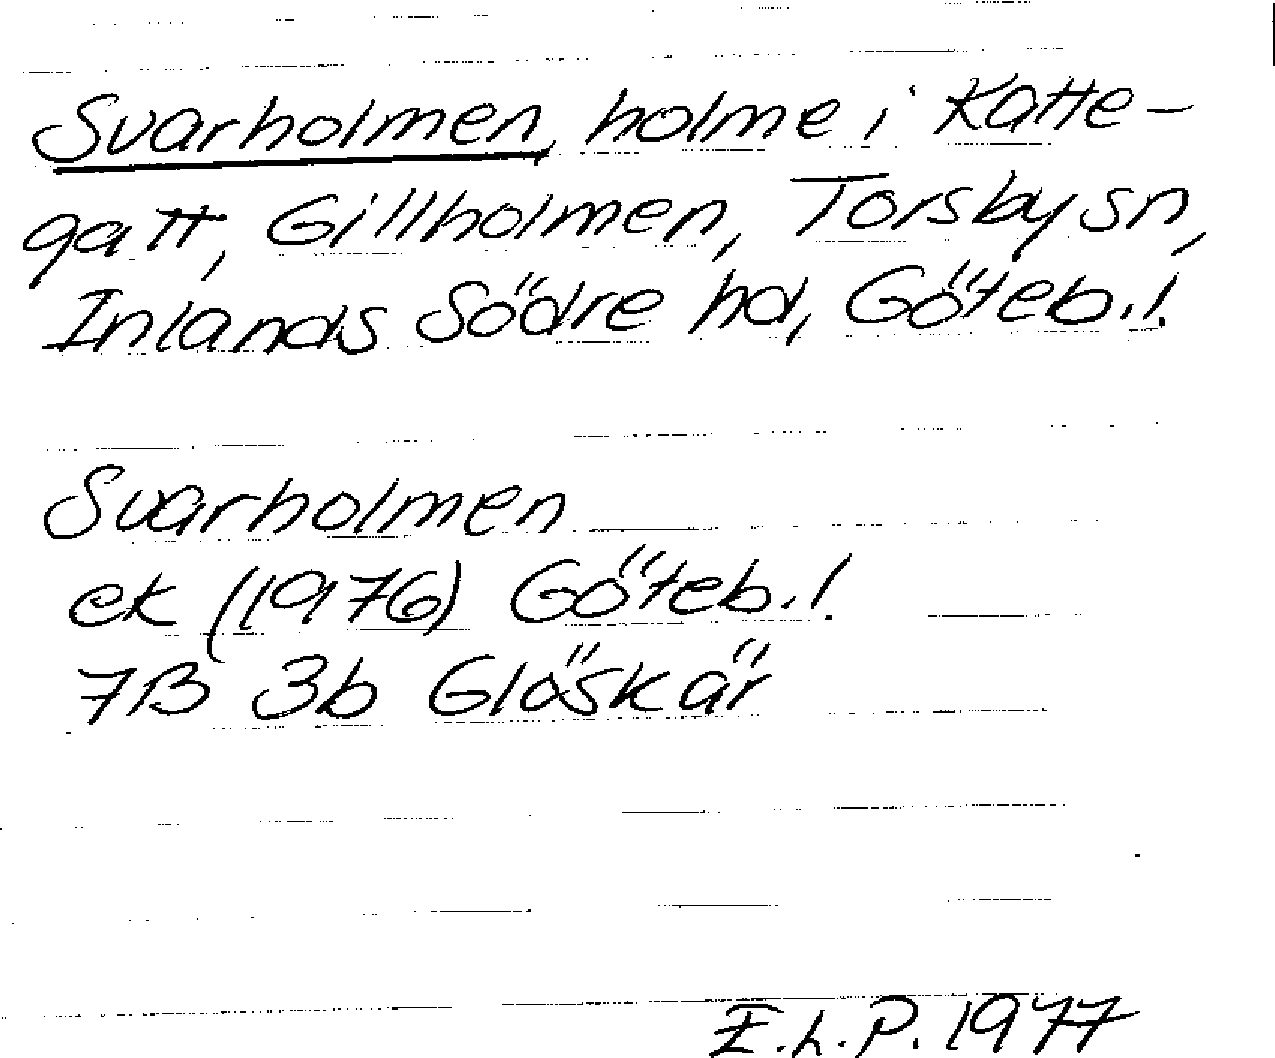 Svarholmen, holme i Katte-
gatt, Gillholmen, Torsby sn,
Inlands Södre hd, Göteb.l.
Svarholmen
ek (1976) Göteb.l.
7B 3b Glöskär
E.L.P. 1977